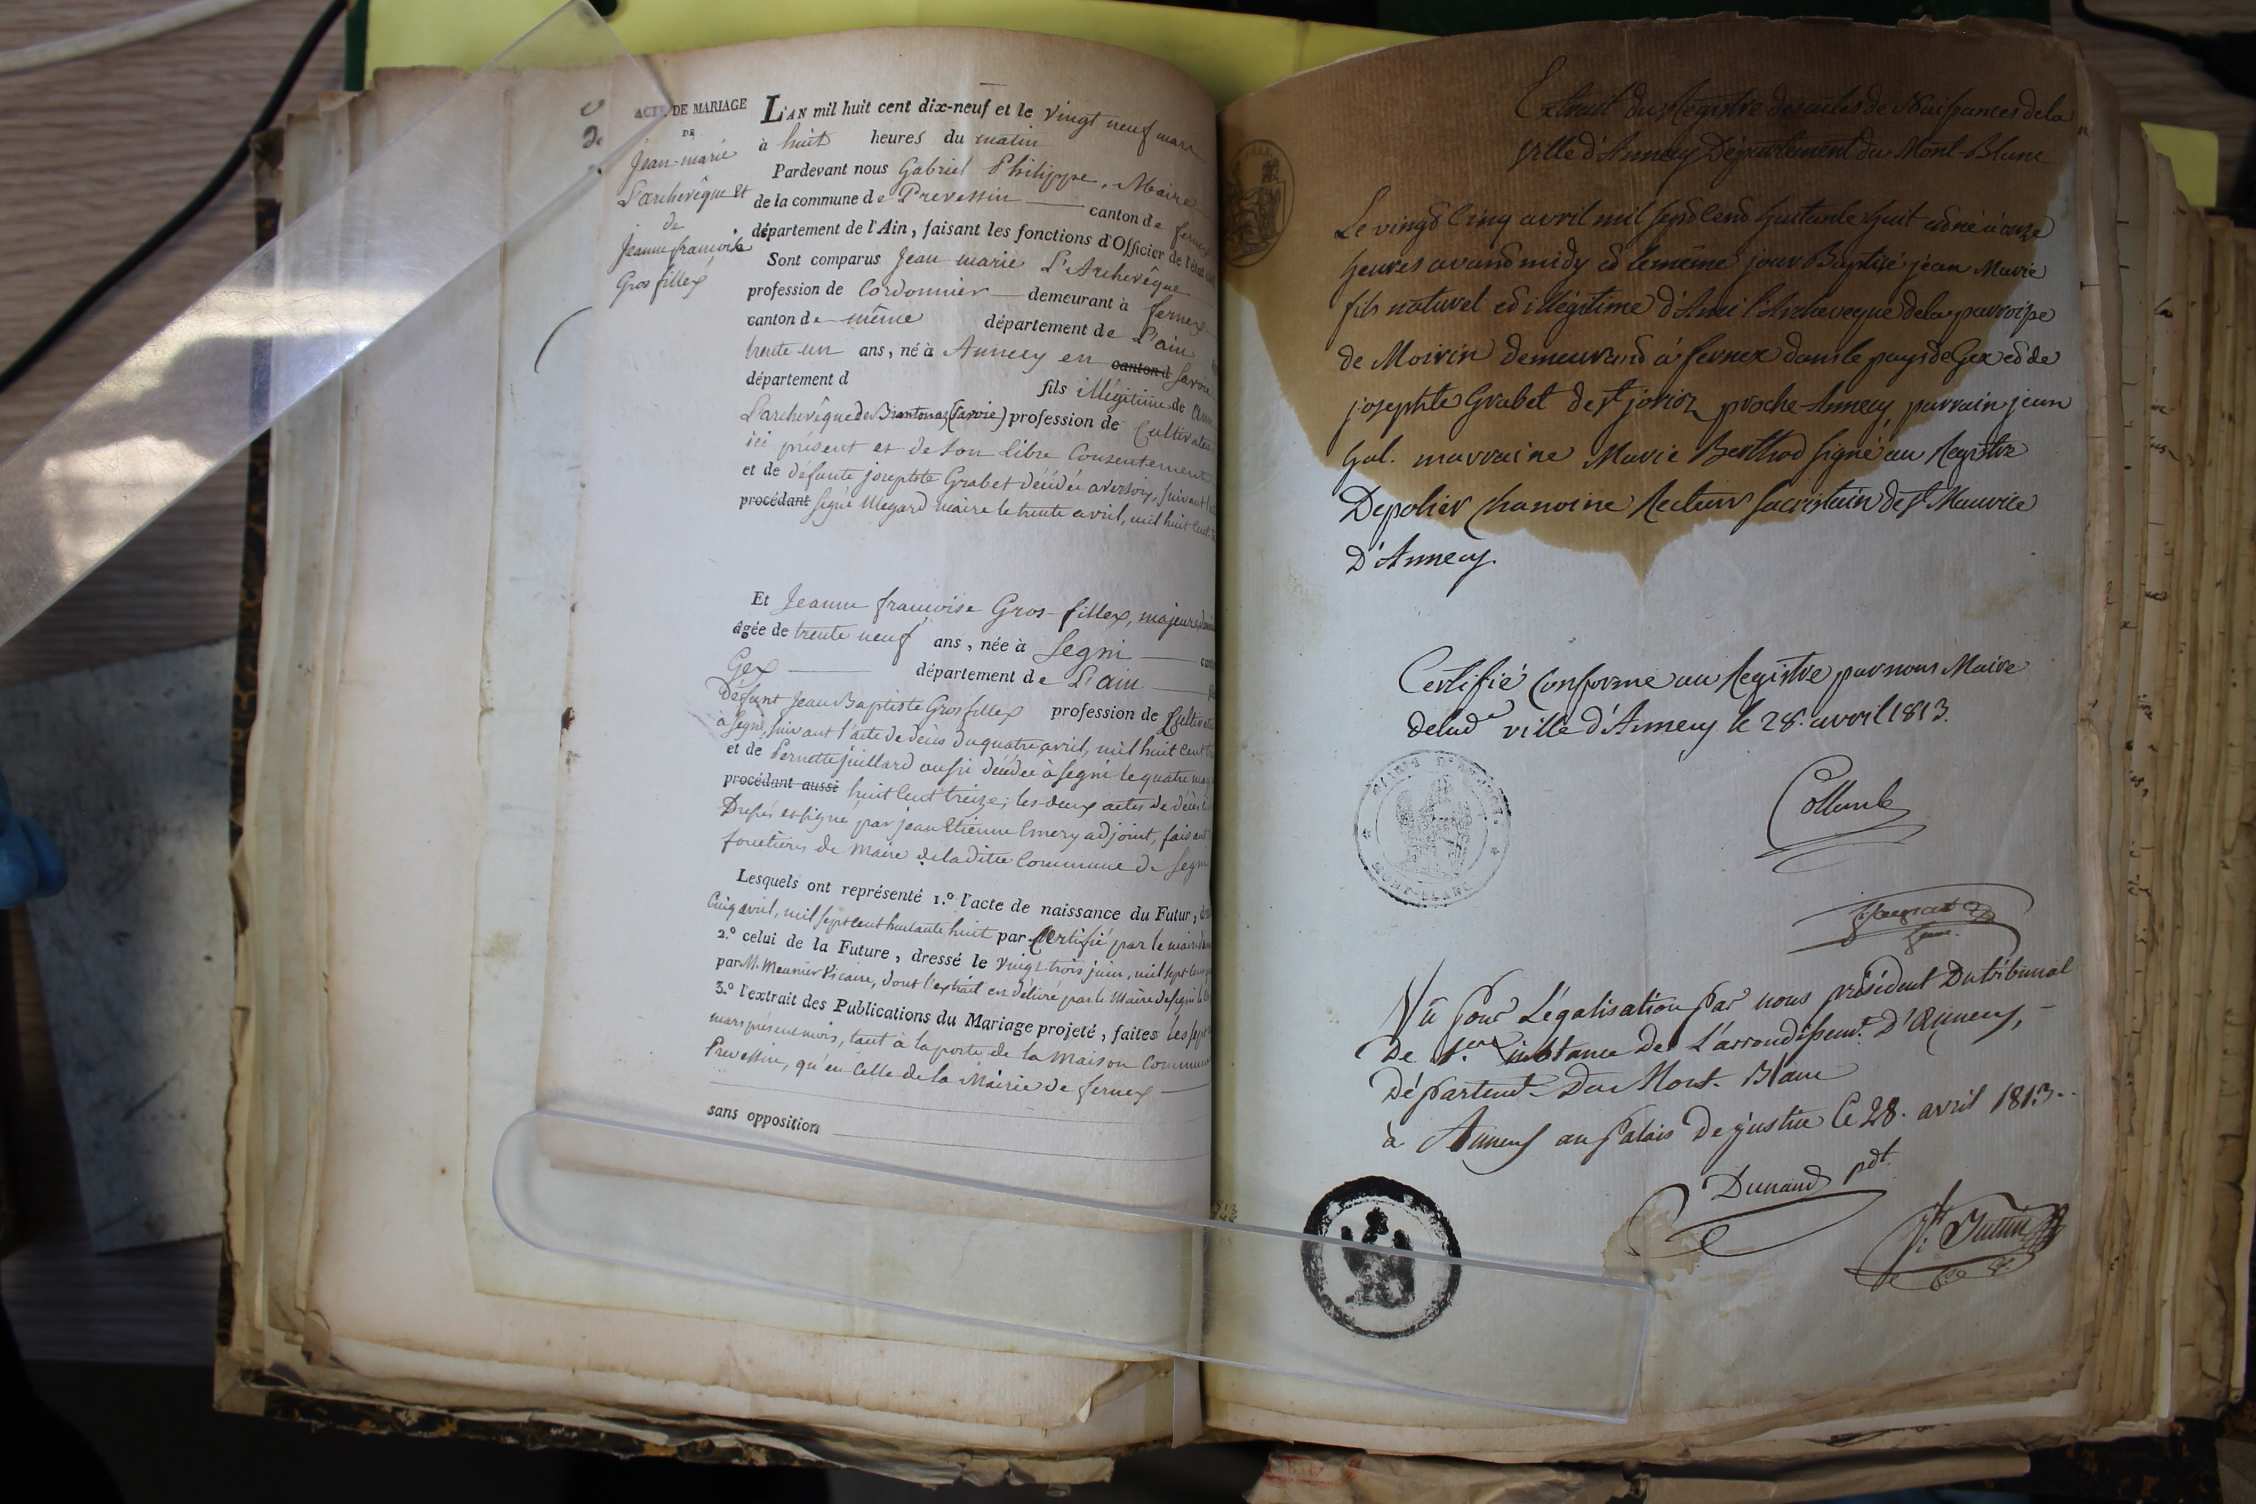 ACTE DE MARIAGE
DE
Jean-marie
L'archevêque et
de
Jeanne françoise
Gros fillex
L'AN mil huit cent dix-neuf et le vingt neuf mars
à huit heures du matin
Pardevant nous Gabriel Philippe, Maire
de la commune de Prevessin canton de fernex
département de l'Ain, faisant les fonctions d'Officier de l'état
Sont comparus Jean marie L'Archevêque
profession de Cordonnier demeurant à fernex
canton de même département de L'ain
trente un ans, né à Annecy en canton d Savoie
département d fils illégitime de
L'archevêque de (Savoie) profession de Cultivateur
ici présent et de son libre Consentement
et de défunte josephte Grabet décédée suivant
procédant signé Megard maire le trente avril, mil huit cent
Et Jeanne françoise Gros-fillex, majeure
âgée de trente neuf ans, née à Segni
Gex département de L'ain
Défunt Jean Baptiste Gros fillex profession de Cultivateur
à Segni, suivant l'acte de décès du quatre avril, mil huit cent
et de Pernette juillard aussi décédée à Segni le quatre
procédant aussi huit Cent treize; les deux actes de décès
Dressés et signé par jean Etienne Emery adjoint, faisant
fonctions de Maire de la ditte Commune de Segni
Lesquels ont représenté 1.º l'acte de naissance du Futur,
Cinq avril, mil sept cent huitante huit par Certifié par le maire
2.º celui de la Future, dressé le vingt trois juin, mil sept cent
par M. Meunier Vicaire, dont l'extrait en délivré par le Maire de Segni le
3.º l'extrait des Publications du Mariage projeté, faites les sept
mars présent mois, tant à la porte de la Maison Commune
Prevessin, qu'en Celle de la Mairie de fernex
sans opposition
Extrait du Registre des actes de Naissances de la
Ville d'Annecy Département du Mont-Blanc
Le vingt Cinq avril mil sept Cent huitante huit est né à onze
heures avant midy et le même jour Baptisé jean Marie
fils naturel et illégitime d'Ami l'Archeveque de la parroisse
de Moirin demeurand à fernex dans le pays de Gex et de
josephte Grabet de St jorioz proche Annecy, parrain jean
Gal. marraine Marie Berthod signé au Registre
Depolier Chanoine Recteur sacristain de St Maurice
D'Annecy.
Certifié Conforme au Registre par nous Maire
de lad.e ville d'Annecy le 28. avril 1813.
Collomb
Vû pour Légalisation par nous président Du tribunal
De 1.ere instance De L'arrondissem.t D'Annecy,
Départemt Du Mont-Blanc
à Annecy au palais De justice Ce 28. avril 1813.
Dunand pdt